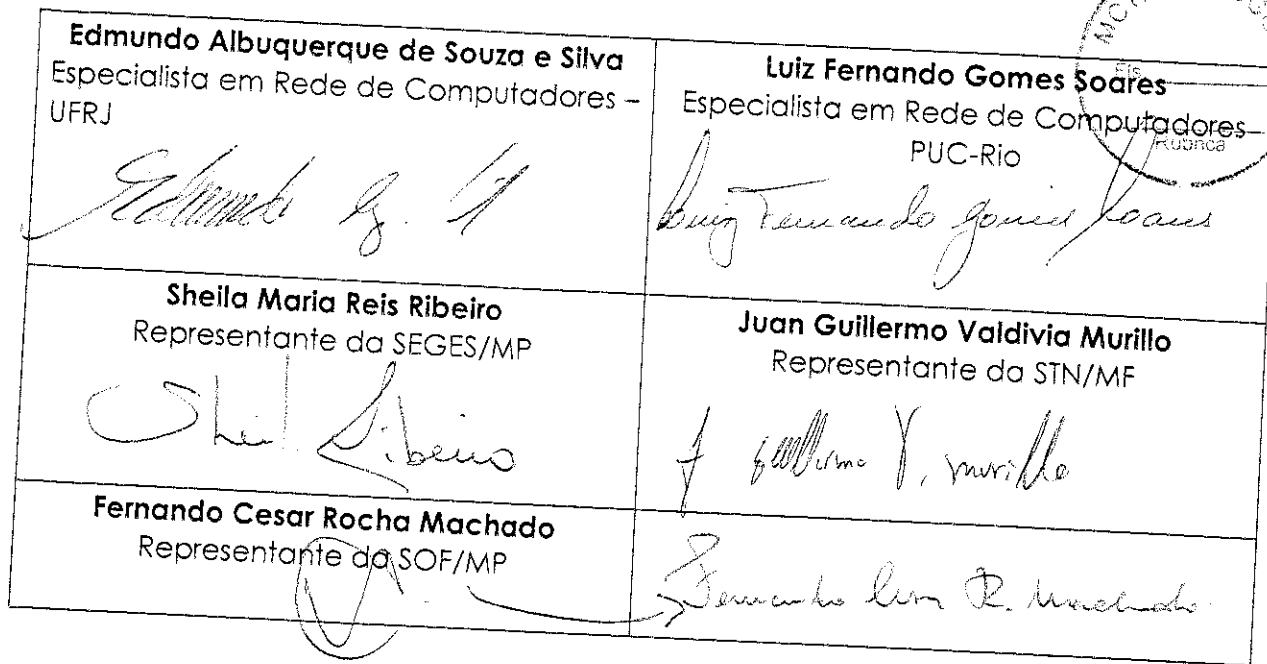 Edmundo Albuquerque de Souza e Silva
Especialista em Rede de Computadores –
UFRJ
Luiz Fernando Gomes Soares
Especialista em Rede de Computadores–
PUC-Rio
Fls
Rubrica
Luiz Fernando Gomes Soares
Sheila Maria Reis Ribeiro
Representante da SEGES/MP
Sheil Ribeiro
Juan Guillermo Valdivia Murillo
Representante da STN/MF
J Guillermo V. Murillo
Fernando Cesar Rocha Machado
Representante da SOF/MP
Fernando Cesar R. Machado